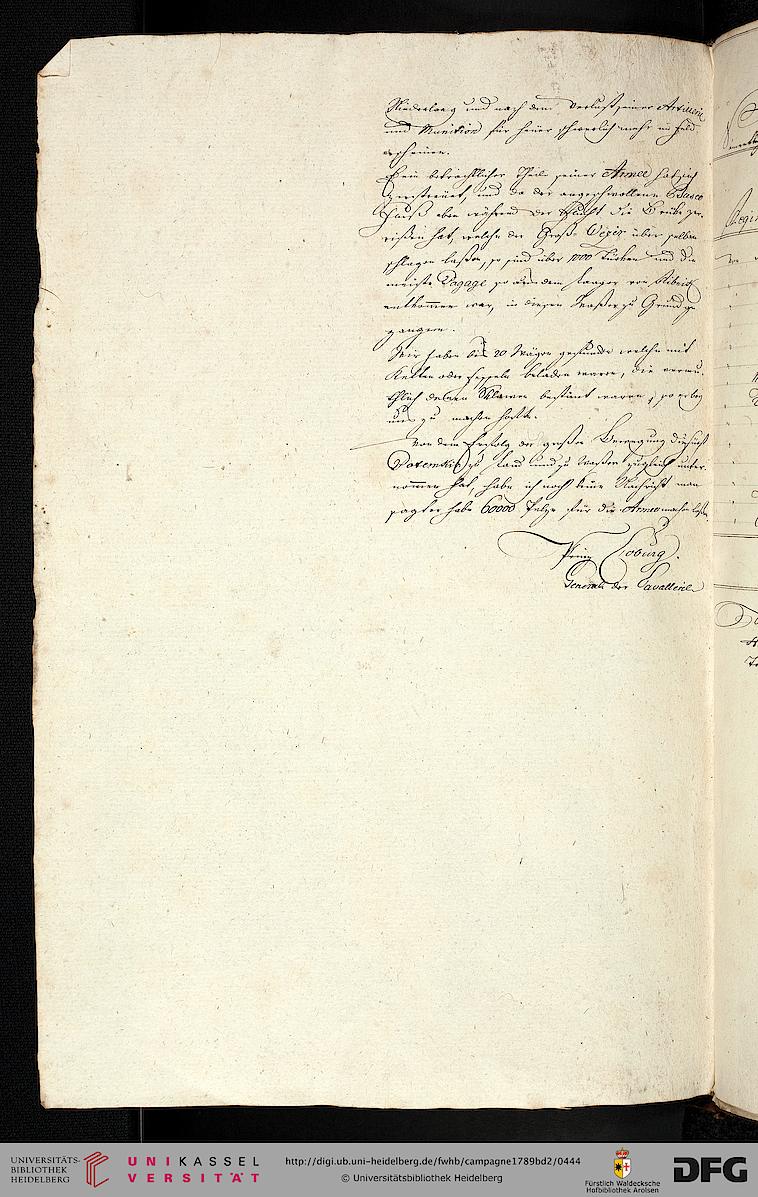 Niederlaag und nach dem Verlust seiner Artillerie
und Munition für heuer schwerlich mehr im Feld
erscheinen.
Ein beträchtlicher Theil seiner Armee hat sich
zerstreuet, und da der angeschwollene Buseo
Fluß eben während der Flucht die Brüke zer-
rissen hat, welche der Groß-Vezir über selben
schlagen lassen, so sind über 1000 Türken und die
meiste Bagage so aus dem Laager von
entkommen war, in diesem Wasser zu Grund ge-
gangen.
Wir haben bis 20 Wägen gefunden welche mit
Ketten oder Fesseln beladen waren, die vermu-
thlich denen Sklaven bestimt waren, so er bey
uns zu machen hofte.
Von dem Erfolg der großen Bewegung die Fürst
Potemkin zu Land und zu Wasser zugleich unter-
nommen hat, habe ich noch keine Nachricht man
sagt er habe 60000 Pelze für die Armee machen lassen
Prinz Coburg.
General der Cavallerie
UNIVERSITÄTS-
BIBLIOTHEK
HEIDELBERG
UNIKASSEL
VERSITÄT
http://digi.ub.uni-heidelberg.de/fwhb/campagne1789bd2/0444
© Universitätsbibliothek Heidelberg
Fürstlich Waldecksche
Hofbibliothek Arolsen
DFG